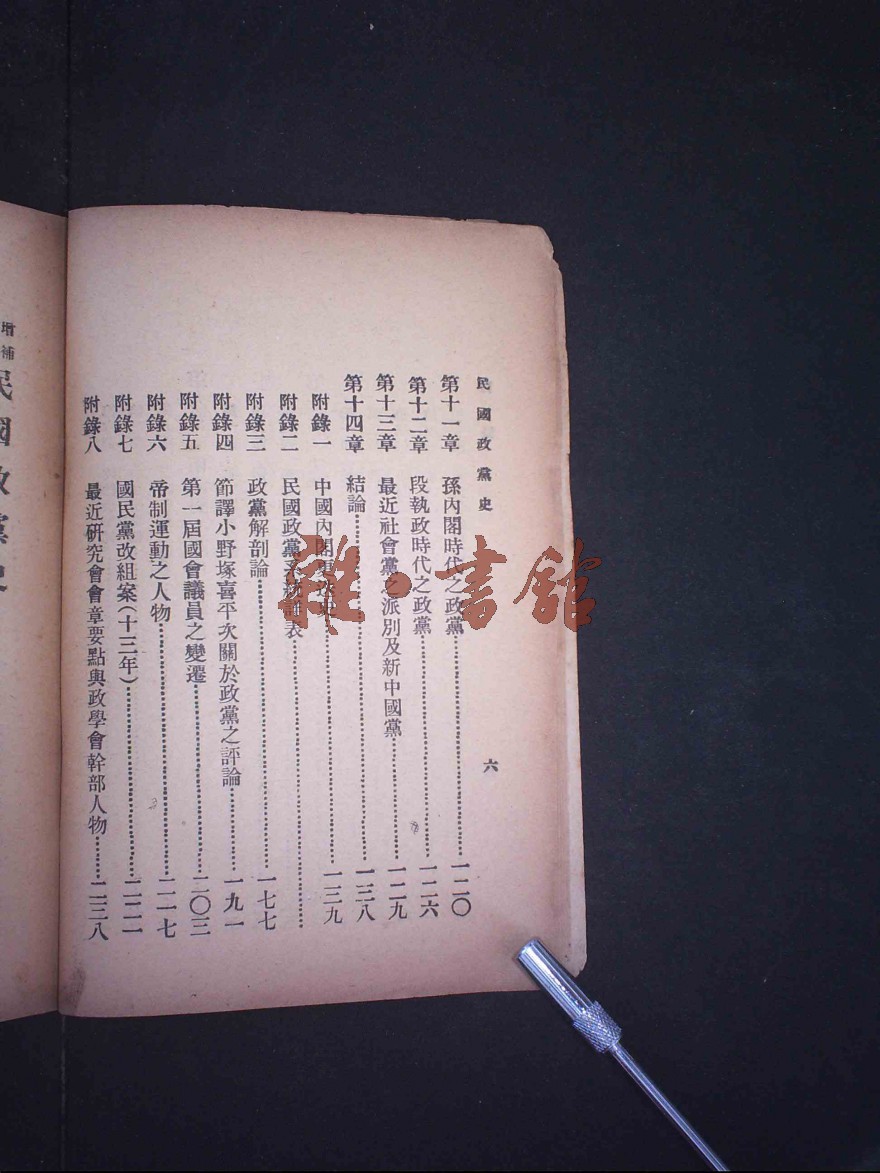 民國政黨史 六
第十一章 孫內閣時代之政黨 一二〇
第十二章 段執政時代之政黨 一二六
第十三章 最近社會黨之派別及新中國黨 一二九
第十四章 結論 一三八
附錄一 中國內閣更迭史 一三九
附錄二 民國政黨系統計表
附錄三 政黨解剖論 一七七
附錄四 節譯小野塚喜平次關於政黨之評論 一九一
附錄五 第一屆國會議員之變遷 二〇三
附錄六 帝制運動之人物 二一七
附錄七 國民黨改組案(十三年) 二二二
附錄八 最近研究會會章要點與政學會幹部人物 二三八
增補 民國政黨史
雜·書館